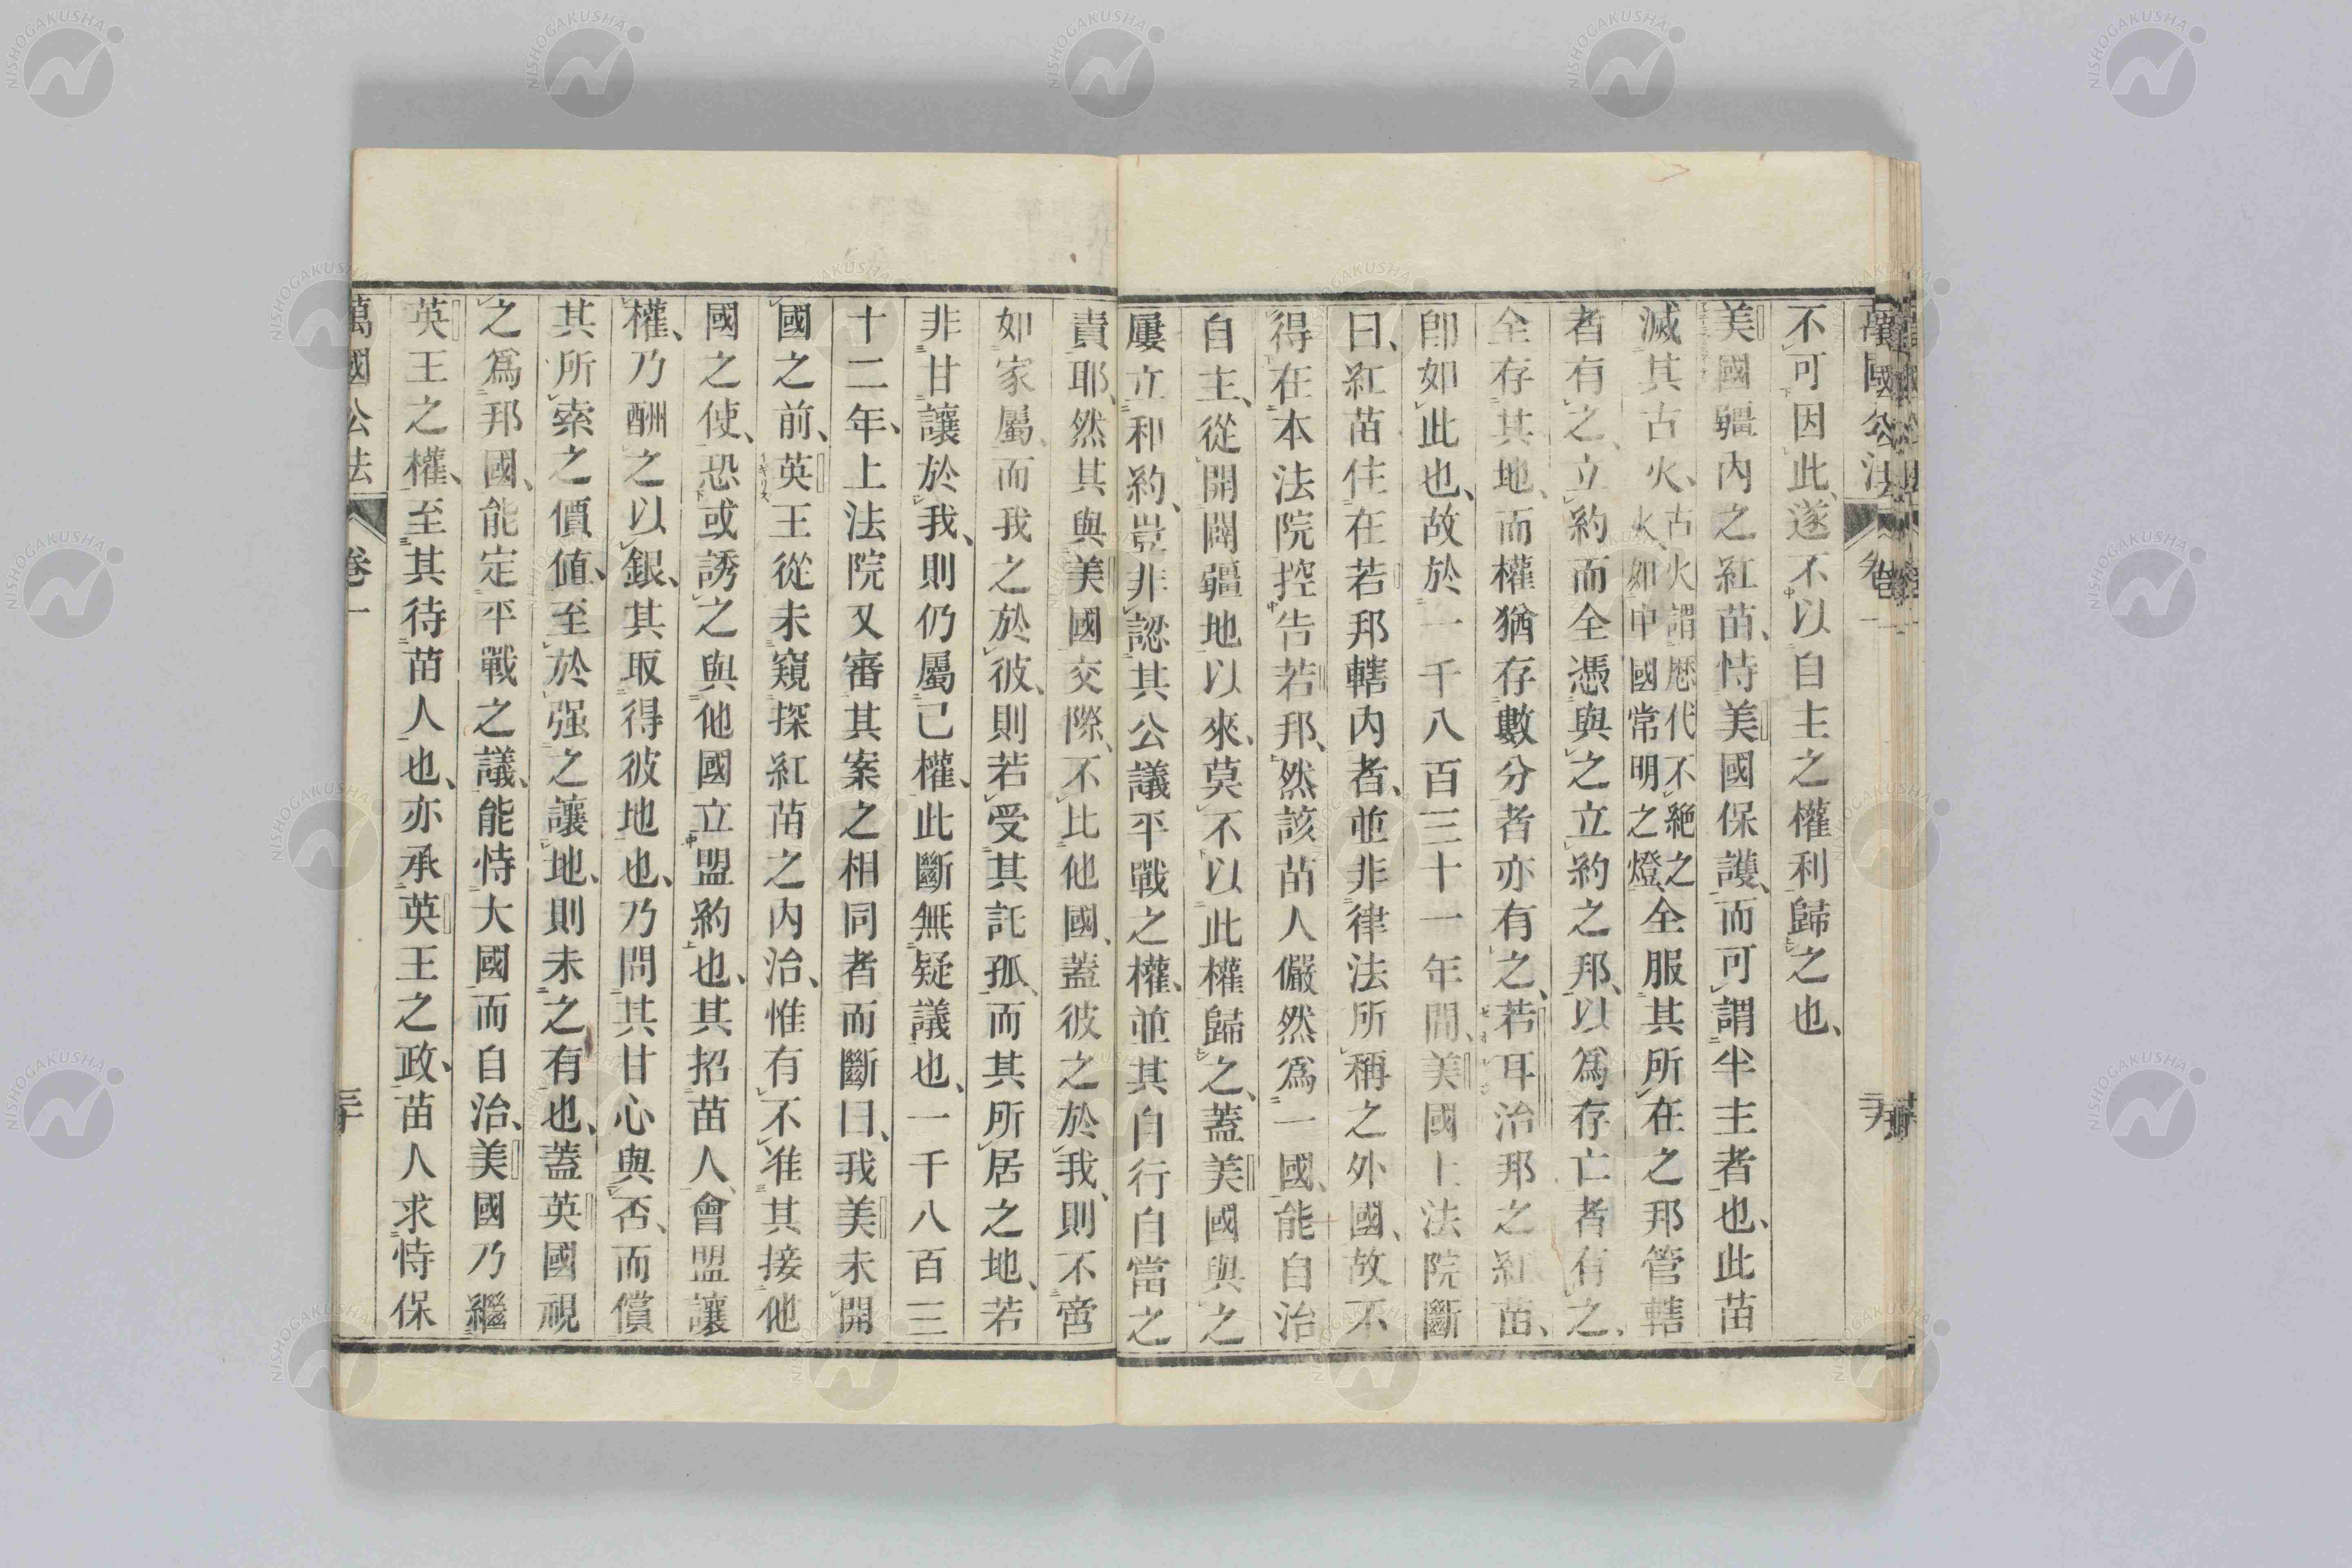 萬國公法 卷一
不可因此、遂不以自主之權利歸之也、
美國疆內之紅苗、恃美國保護、而可謂半主者也、此苗
滅其古火、古火謂歷代不絕之火、如中國常明之燈、全服其所在之邦管轄
者有之、立約而全憑與之立約之邦、以爲存亡者有之、
全存其地、而權猶存數分者亦有之、若耳治邦之紅苗、
卽如此也、故於一千八百三十一年間、美國上法院斷
曰、紅苗住在若邦轄內者、並非律法所稱之外國、故不
得在本法院控告若邦、然該苗人儼然爲一國、能自治
自主、從開闢疆地以來、莫不以此權歸之、蓋美國與之
屢立和約、豈非認其公議平戰之權、並其自行自當之
責耶、然其與美國交際、不比他國、蓋彼之於我、則不啻
如家屬、而我之於彼、則若受其託孤、而其所居之地、若
非甘讓於我、則仍屬己權、此斷無疑議也、一千八百三
十二年、上法院又審其案之相同者而斷曰、我美未開
國之前、英王從未窺探紅苗之內治、惟有不准其接他
イギリス
國之使、恐或誘之與他國立盟約也、其招苗人、會盟讓
權、乃酬之以銀、其取得彼地也、乃問其甘心與否、而償
其所索之價値、至於强之讓地、則未之有也、蓋英國視
之爲邦國、能定平戰之議、能恃大國而自治、美國乃繼
英王之權、至其待苗人也、亦承英王之政、苗人求恃保
萬國公法 卷一 三十